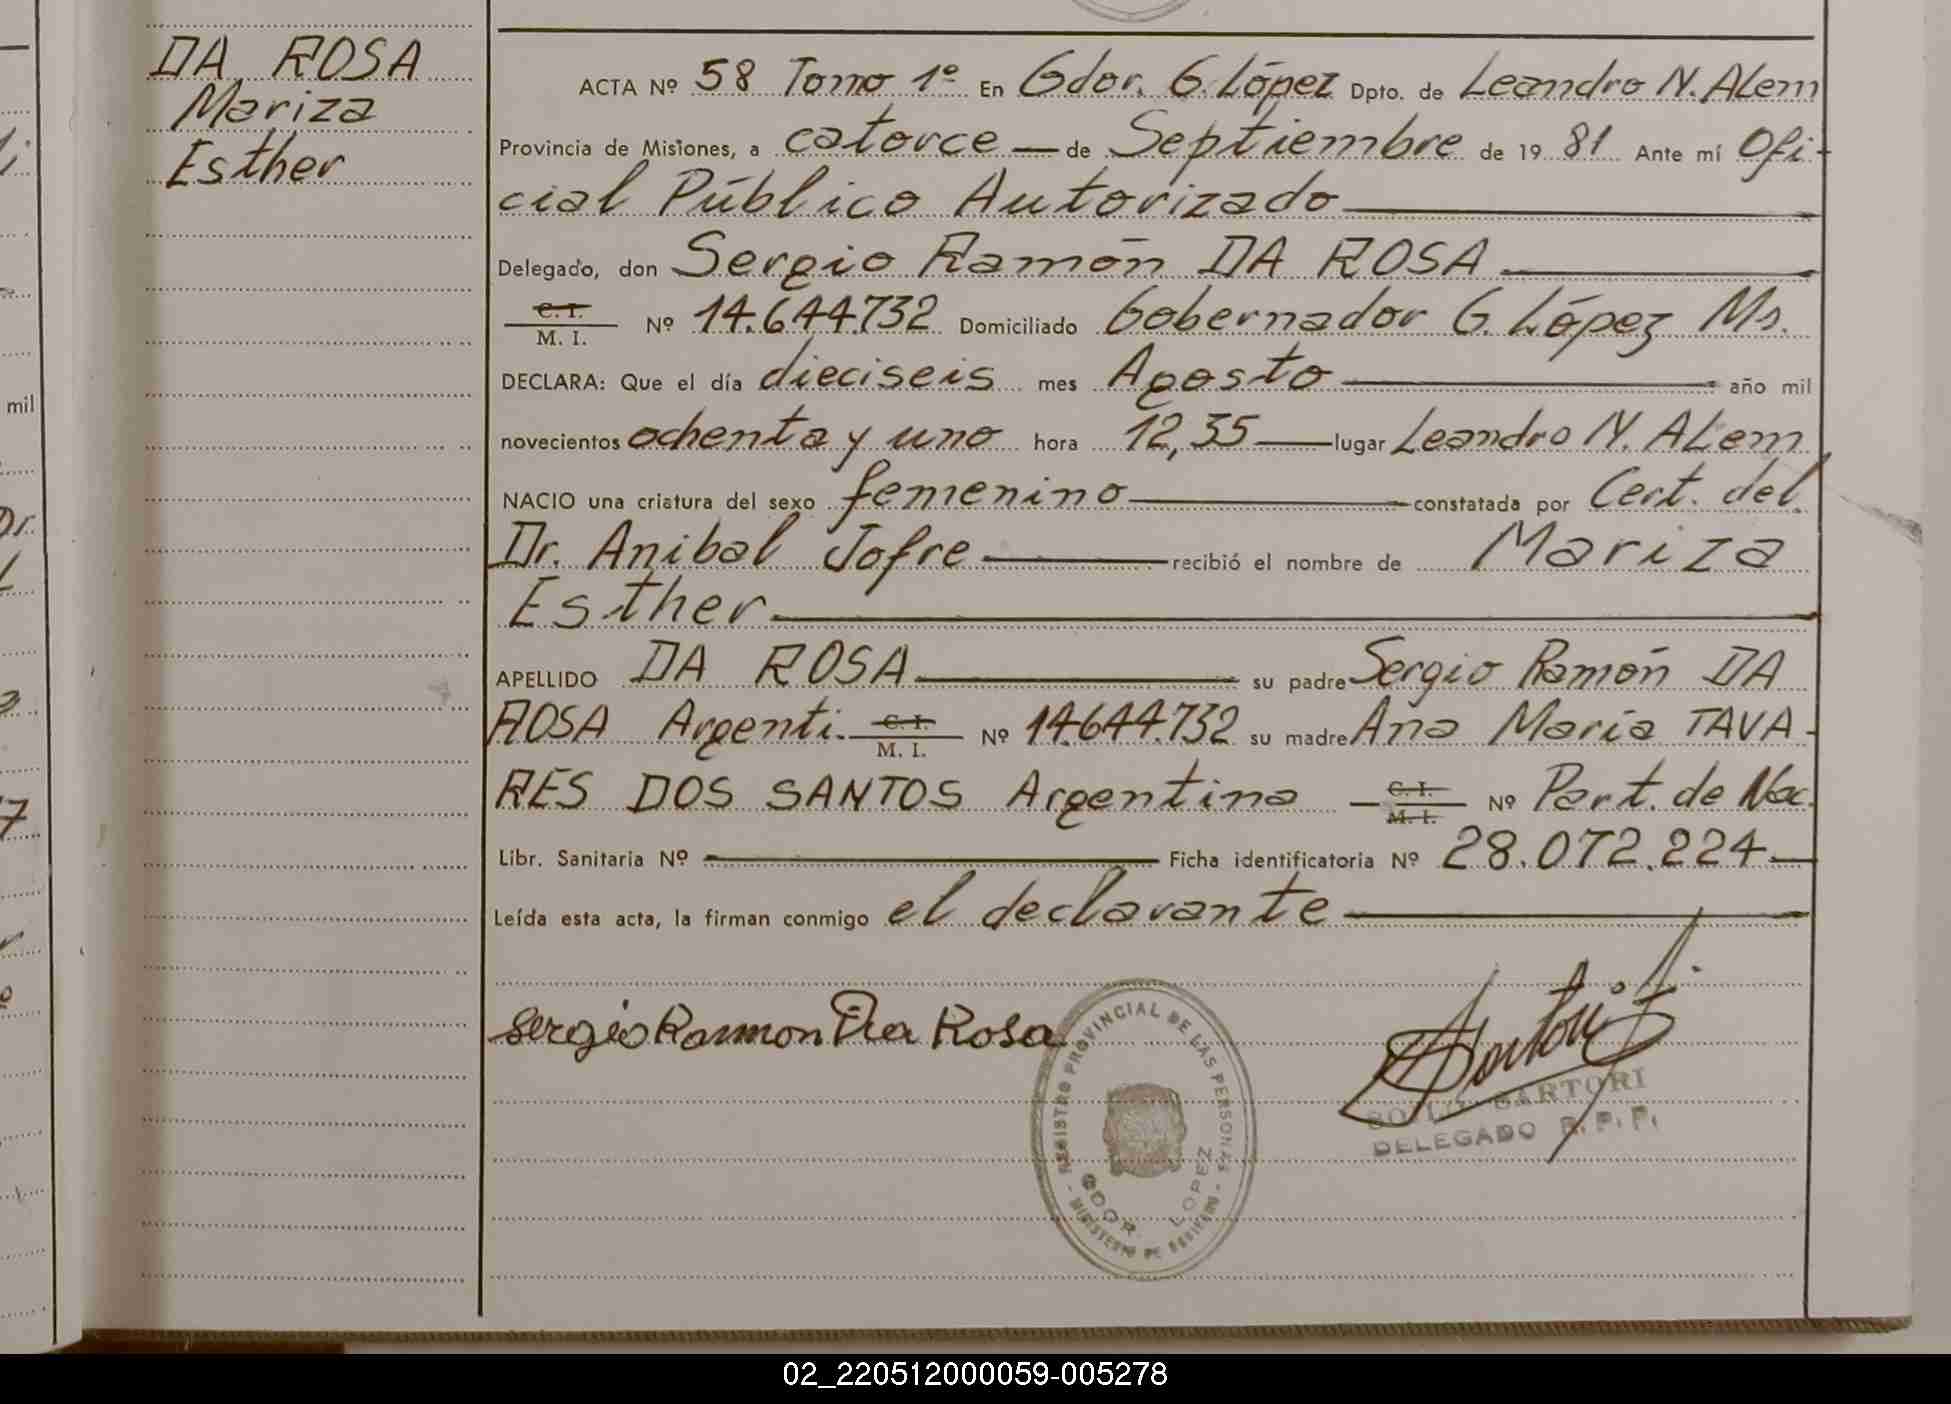 DA ROSA
Mariza
Esther
ACTA Nº 58 Tomo 1º En Gdor. G. López Dpto. de Leandro N. ALem
Provincia de Misiones, a catorce — de Septiembre de 19 81 Ante mí Ofi-
cial Público Autorizado
Delegado, don Sergio Ramón DA ROSA
C. I.
M. I. Nº 14.644.732 Domiciliado Gobernador G. López Ms.
DECLARA: Que el día dieciseis mes Agosto año mil
novecientos ochenta y uno hora 12,35 lugar Leandro N. ALem
NACIO una criatura del sexo femenino constatada por Cert. del
Dr. Anibal Jofre recibió el nombre de Mariza
Esther
APELLIDO DA ROSA su padre Sergio Ramón DA
ROSA Argenti. C. I. M. I. Nº 14.644.732 su madre Ana María TAVA-
RES DOS SANTOS Argentina C. I. M. I. Nº Part. de Nac.
Libr. Sanitaria Nº Ficha identificatoria Nº 28.072.224
Leída esta acta, la firman conmigo el declarante
Sergio Ramon Da Rosa
REGISTRO PROVINCIAL DE LAS PERSONAS
GDOR. LOPEZ
MINISTERIO DE GOBIERNO
SARTORI
DELEGADO R. P. P.
mil
Dr.
02_220512000059-005278